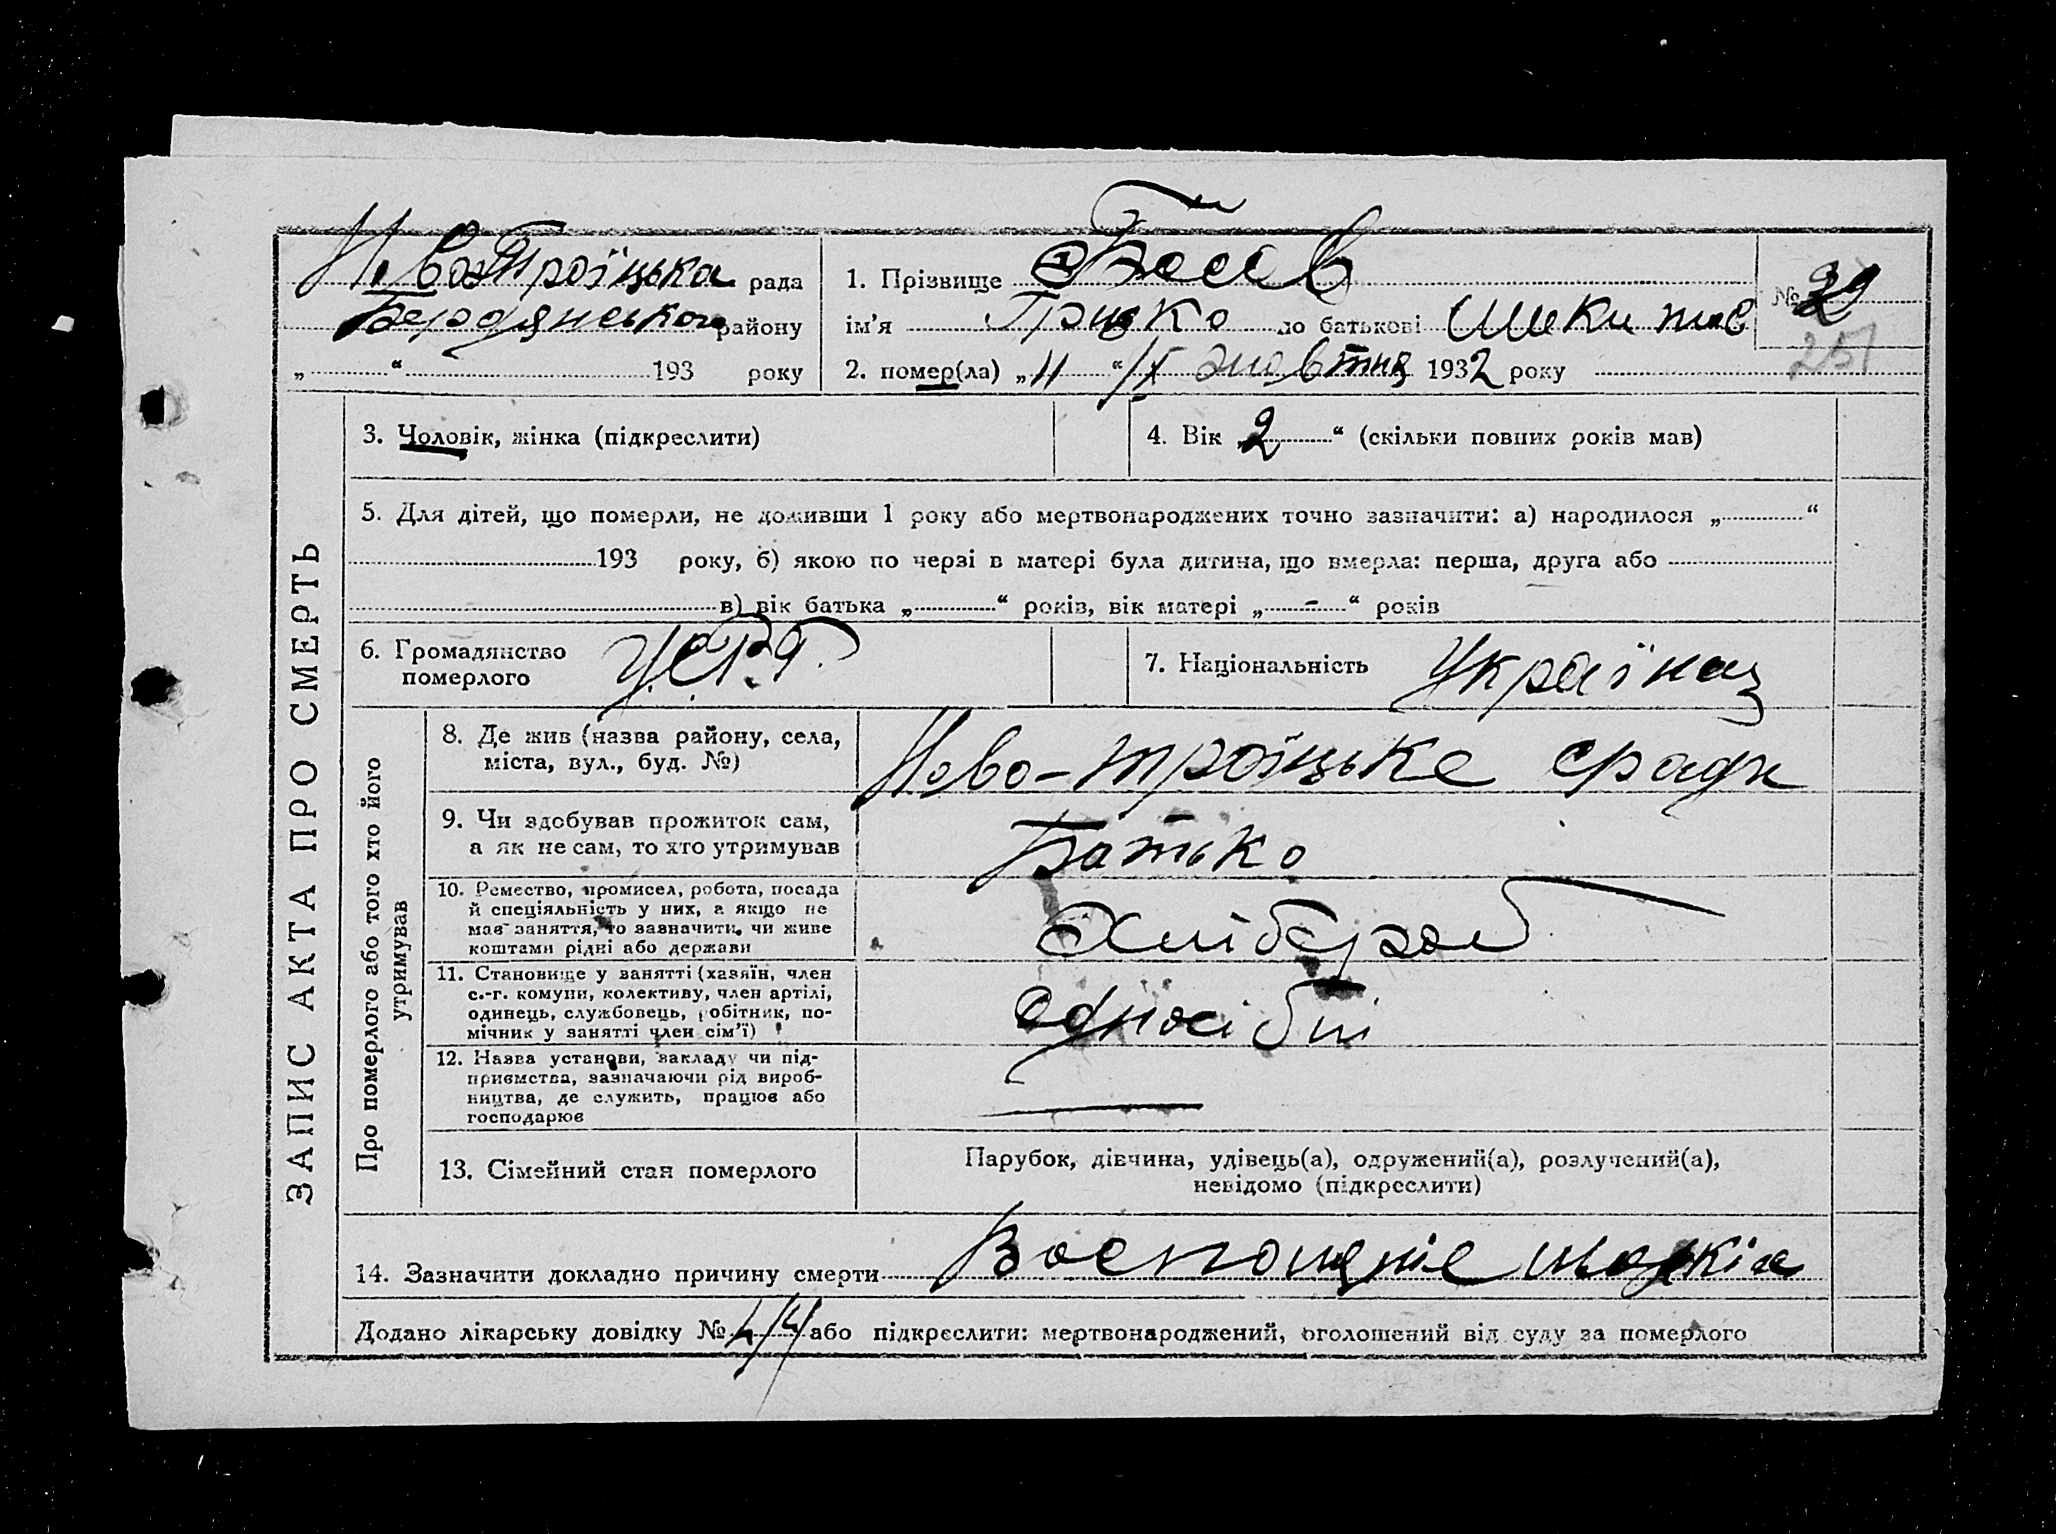 ЗАПИС АКТА ПРО СМЕРТЬ
Ново Троїцька рада
Бердянського району
„ “ 193 року
1. Прізвище
ім'я Грицко по батькові
№ 29
251
2. помер(ла) „11 “/X жовтня 1932 року
3. Чоловік, жінка (підкреслити)
4. Вік 2 “ (скільки повних років мав)
5. Для дітей, що померли, не доживши 1 року або мертвонароджених точно зазначити: а) народилося „ “
193 року, б) якою по черзі в матері була дитина, що вмерла: перша, друга або
в) вік батька „ “ років, вік матері „ - “ років
6. Громадянство
померлого
У.С.Р.Р.
7. Національність Українец
Про померлого або того хто його
утримував
8. Де жив (назва району, села,
міста, вул., буд. №)
Ново-троїцьке сради
9. Чи здобував прожиток сам,
а як не сам, то хто утримував
Батько
10. Ремество, промисел, робота, посада
й спеціяльність у них, а якщо не
мав заняття, то зазначити, чи живе
коштами рідні або держави
Хлібороб
11. Становище у занятті (хазяїн, член
с.-г. комуни, колективу, член артілі,
одинець, службовець, робітник, по-
мічник у занятті член сім'ї)
12. Назва установи, закладу чи під-
приємства, зазначаючи рід вироб-
ництва, де служить, працює або
господарює
13. Сімейний стан померлого
Парубок, дівчина, удівець(а), одружений(а), розлучений(а),
невідомо (підкреслити)
14. Зазначити докладно причину смерти
Додано лікарську довідку № або підкреслити: мертвонароджений, оголошений від суду за померлого